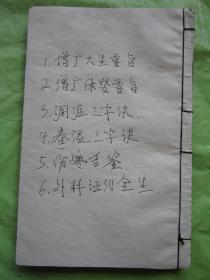 1. 增广大生要旨
2. 增广保婴要旨
3. 润症三字诀
4. 春温三字诀
5. 伤寒舌鉴
6. 外科证治全生